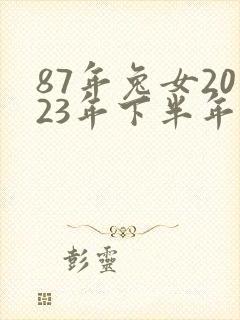 87年兔女20
23年下半年
彭靈